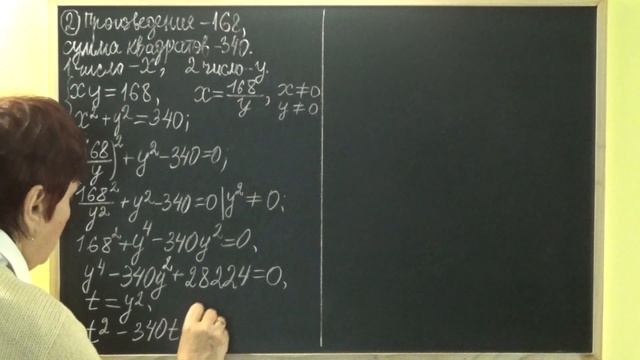 ② Произведения -168,
сумма квадратов -340.
1 число -x, 2 число -y.
xy = 168, x = 168/y, x ≠ 0
y ≠ 0
x² + y² = 340;
68/y)² + y² - 340 = 0;
168²/y² + y² - 340 = 0 | y² ≠ 0;
168² + y⁴ - 340y² = 0,
y⁴ - 340y² + 28224 = 0,
t = y²,
t² - 340t